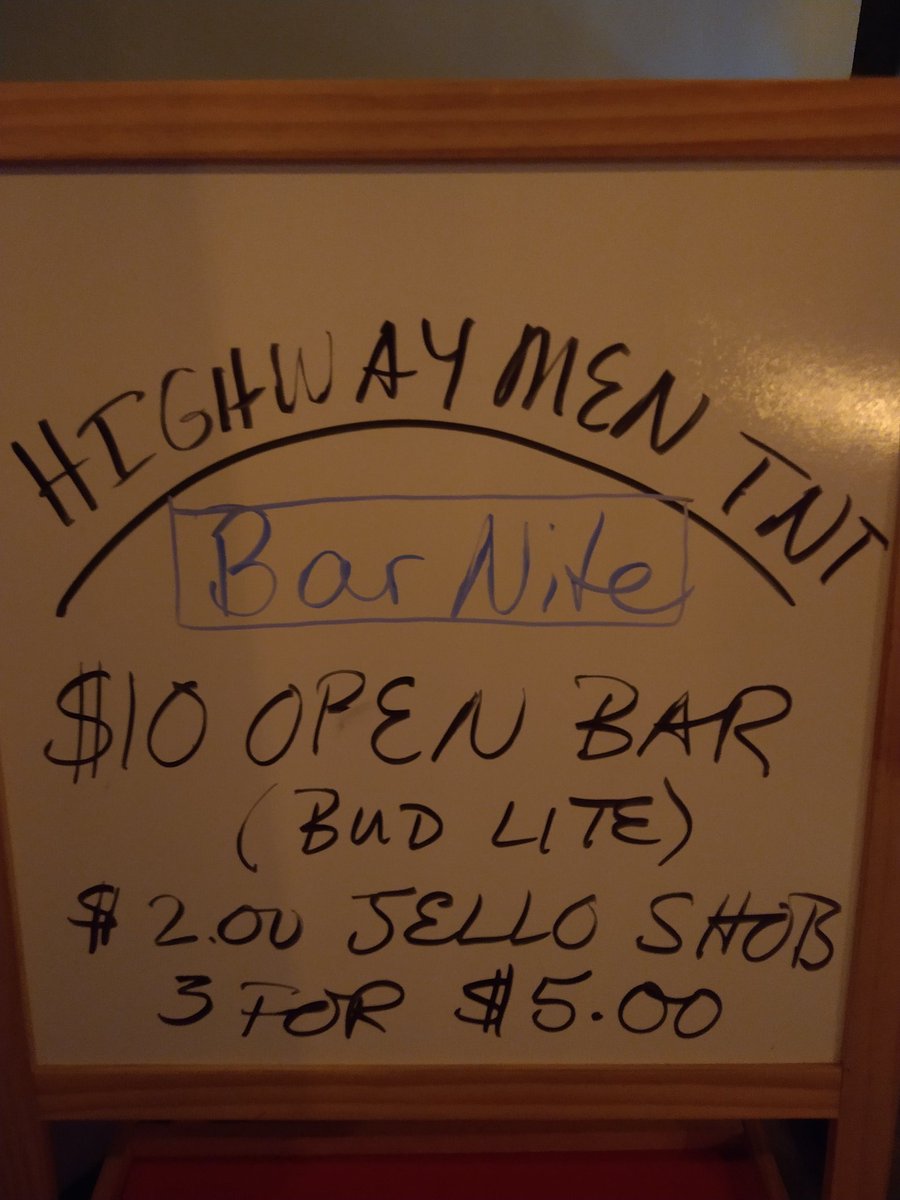 HIGHWAYMEN TNT
Bar Nite
$10 OPEN BAR
(BUD LITE)
$2.00 JELLO SHOTS
3 FOR $5.00